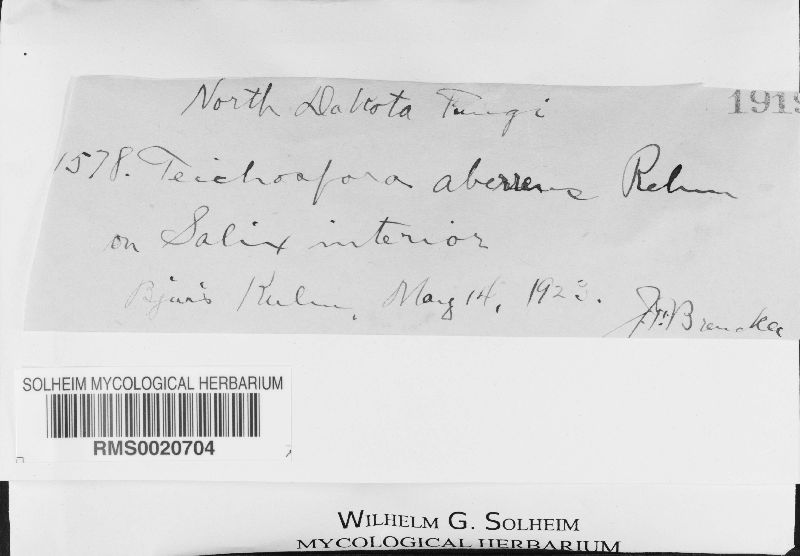 North Dakota Fungi
1919
1578. Teichospora aberrens Rehm
on Salix interior
Kulm, May 14, 1923.
J.F. Brenckle
SOLHEIM MYCOLOGICAL HERBARIUM
RMS0020704
WILHELM G. SOLHEIM
MYCOLOGICAL HERBARIUM